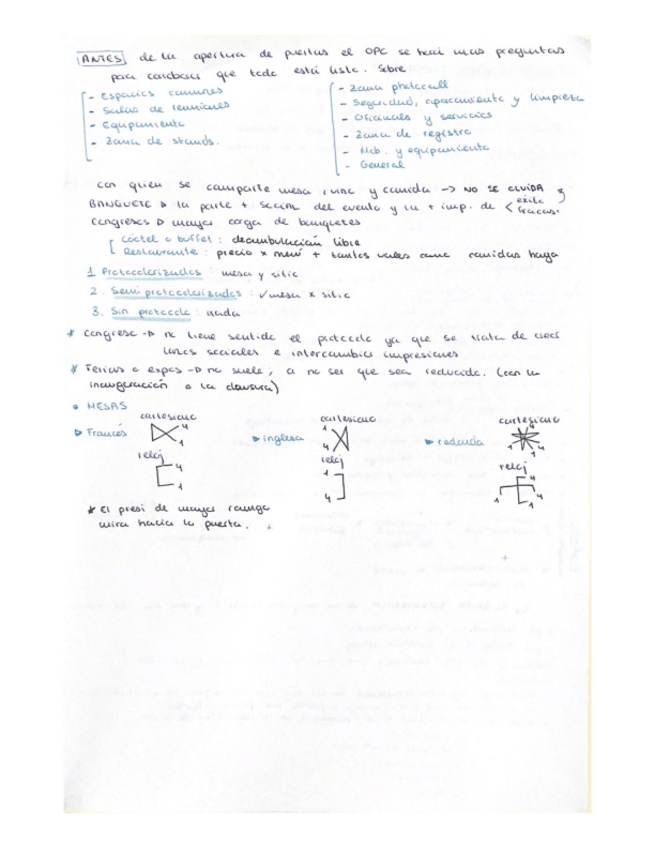 ANTES de la apertura de puertas el OPC se hará unas preguntas
para corroborar que todo está listo. Sobre
- Espacios comunes
- Salas de reuniones
- Equipamiento
- Zona de stands.
- Zona photocall
- Seguridad, aparcamiento y limpieza
- Oficinas y servicios
- Zona de registro
- Mob. y equipamiento
- General
con quien se comparte mesa, vino y comida -> NO SE OLVIDA
BANQUETE ▷ la parte + social del evento y la + imp. de < éxito fracaso.
Congresos ▷ mayor carga de banquetes
Cóctel o buffet : deambulación libre
Restaurante : precio x menú + tantos vales como comidas haya
1. Protocolarizados : mesa y sitio
2. Semiprotocolarizados : ✓ mesa x sitio
3. Sin protocolo : nada
* Congreso -▷ no tiene sentido el protocolo ya que se trata de crear
lazos sociales e intercambiar impresiones
* Ferias o expos -▷ no suele, a no ser que sea reducida. (con la
inauguración o la clausura)
• MESAS
▷ Francés cartesiano 4 1
reloj 4 1
▷ inglesa cartesiano 1 4
reloj 1 4
▷ redonda cartesiano 4 1 1
reloj 4 4 1 1
* El presi de mayor rango
mira hacia la puerta.